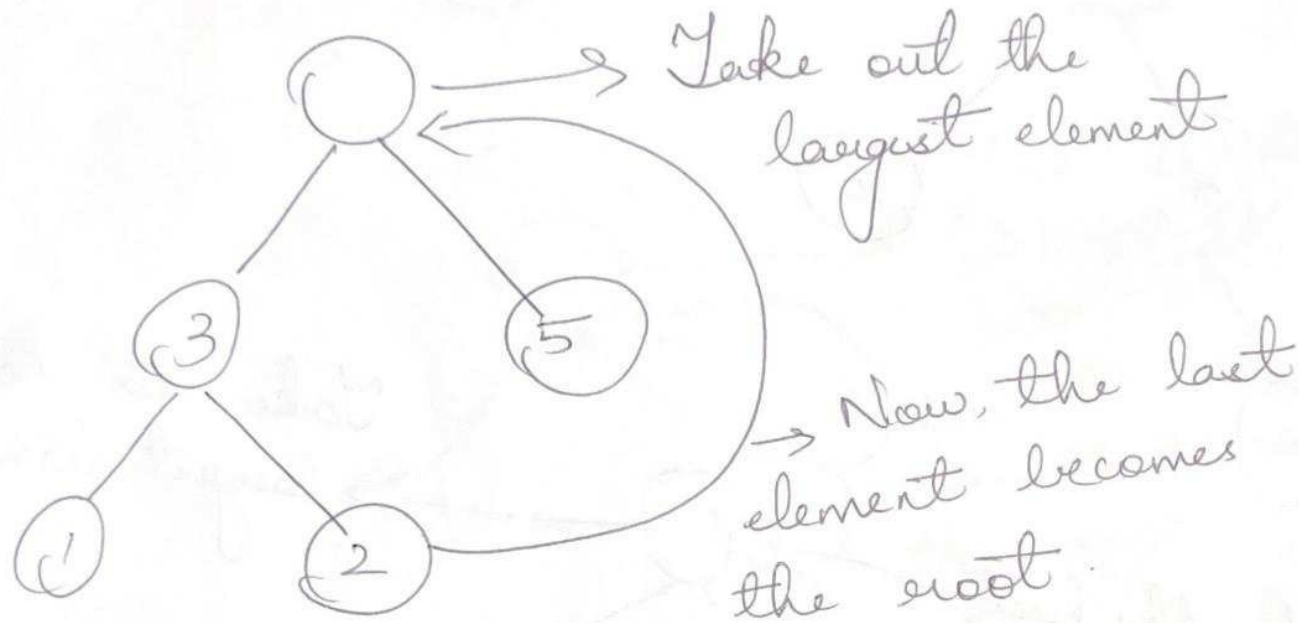 → Take out the
largest element
3
5
→ Now, the last
element becomes
the root.
1
2